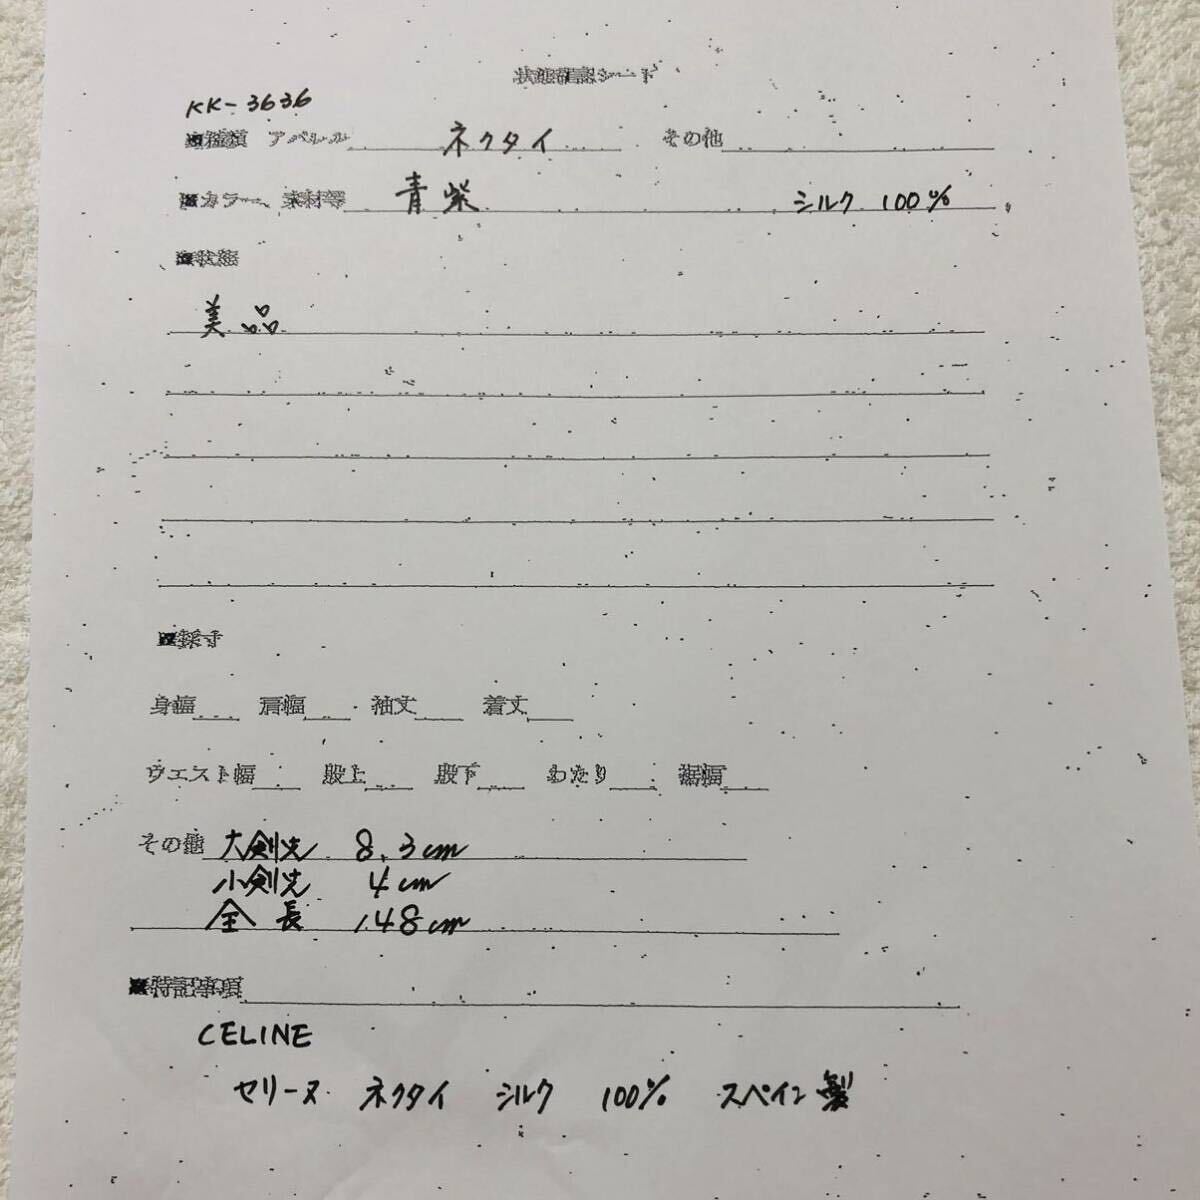 状態確認シート
KK-3636
■種類 アパレル ネクタイ その他
■カラー、素材等 青紫 シルク 100%
■状態
美品
■採寸
身幅 肩幅 袖丈 着丈
ウエスト幅 股上 股下 わたり 裾幅
その他 大剣先 8.3cm
小剣先 4cm
全長 148cm
■特記事項
CELINE
セリーヌ ネクタイ シルク 100% スペイン製